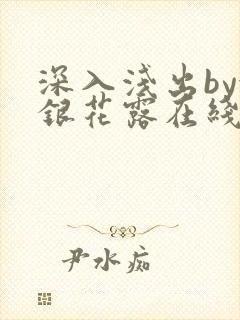 深入浅出by
銀花露在綫
尹水痴